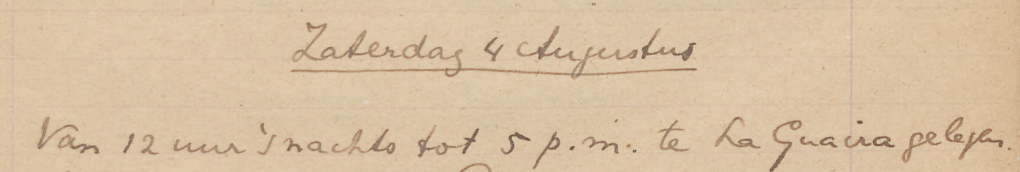 Zaterdag 4 Augustus
Van 12 uur 's nachts tot 5 p.m. te La Guaira gelegen.